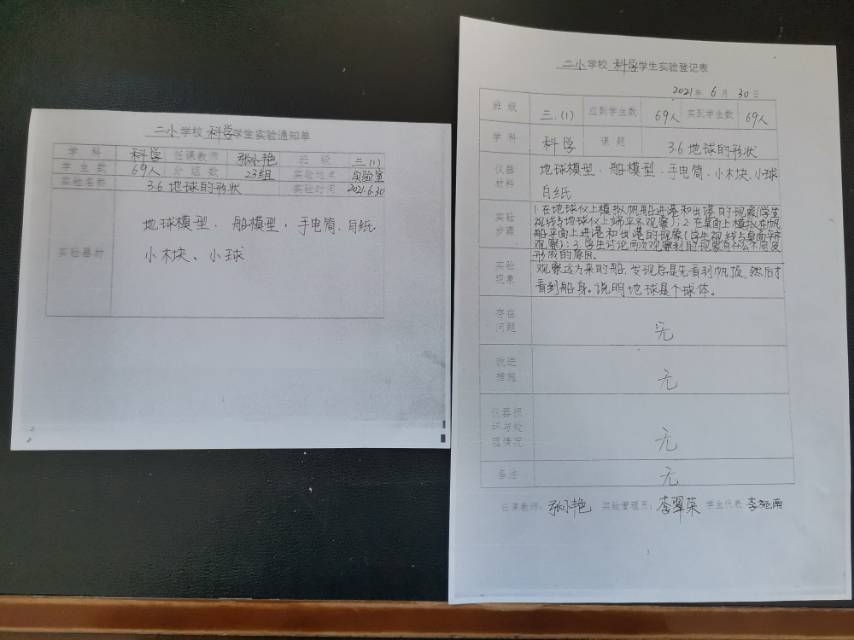 二小学校 科学学生实验通知单
学科 科学 任课教师 张小艳 班级 三.(1)
学生数 69人 分组数 23组 实验地点 实验室
实验名称 3.6 地球的形状 实验时间 2021.6.30
实验器材
地球模型、船模型、手电筒、白纸、
小木块、小球
二小学校 科学学生实验登记表
2021年 6月 30日
班级 三.(1) 应到学生数 69人 实到学生数 69人
学科 科学 课题 3.6 地球的形状
仪器材料
地球模型、船模型、手电筒、小木块、小球
白纸
实验步骤
1.在地球仪上模拟帆船进港和出港的现象(学生
视线与地球仪上端平来观察);2.在桌面上模拟在帆
船平面上进港和出港的现象(学生视线与桌面平齐
观察);3.学生讨论两次观察到的现象有什么不同及
形成的原因。
实验现象
观察远方来的船,发现总是先看到帆顶,然后才
看到船身。说明地球是个球体。
存在问题 无
改进措施 无
仪器损坏与处理情况 无
备注 无
任课教师:张小艳 实验管理员:李翠英 学生代表:李